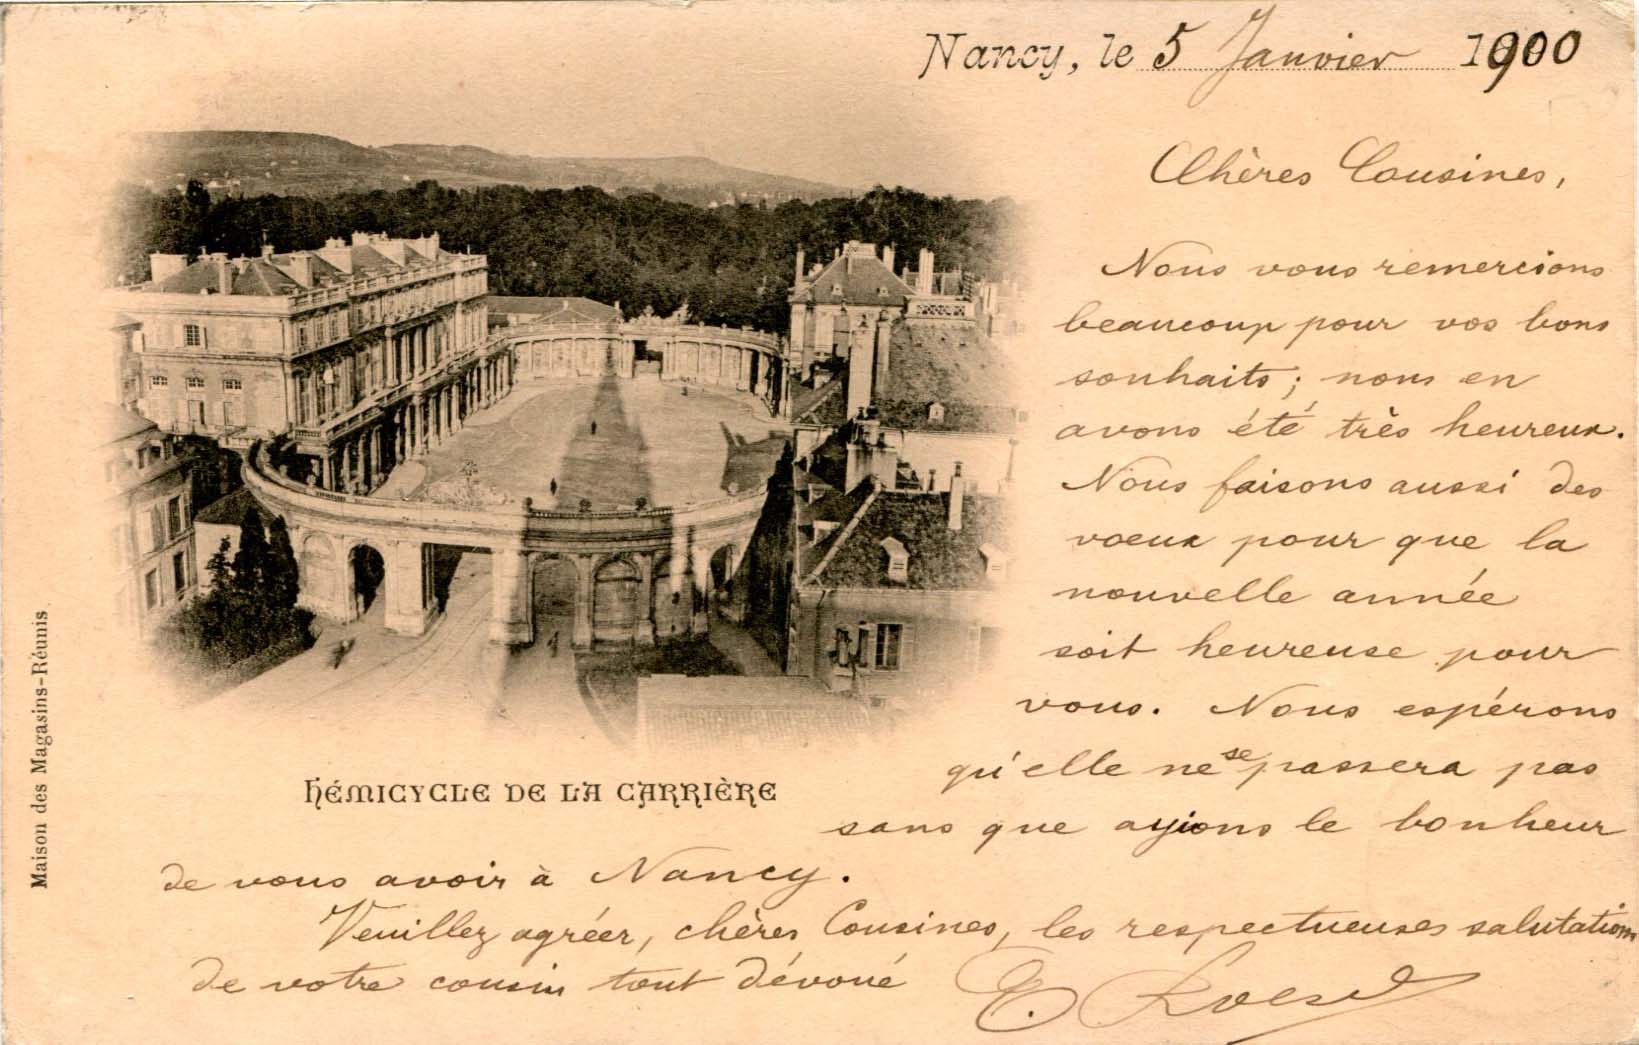 Nancy, le 5 Janvier 1900
Chères Cousines,
Nous vous remercions
beaucoup pour vos bons
souhaits; nous en
avons été très heureux.
Nous faisons aussi des
voeux pour que la
nouvelle année
soit heureuse pour
vous. Nous espérons
qu'elle ne se passera pas
sans que ayions le bonheur
de vous avoir à Nancy.
Veuillez agréer, chères Cousines, les respectueuses salutations
de votre cousin tout dévoué
E.
HÉMICYCLE DE LA CARRIÈRE
Maison des Magasins-Réunis